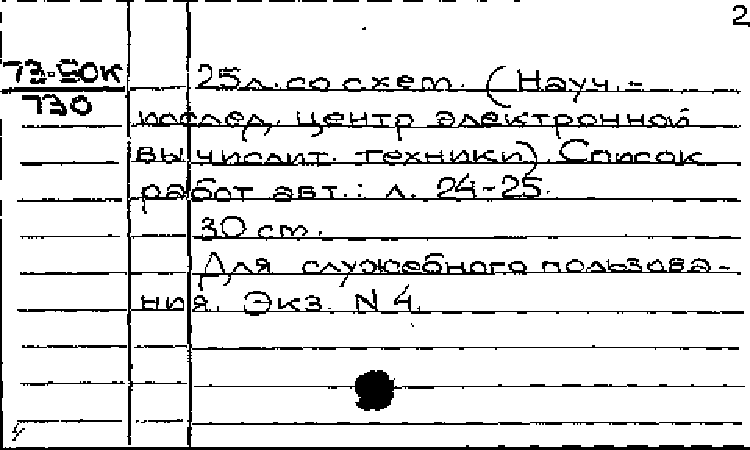 2
73-50к
730
25л. со схем. (Науч.-
исслед. центр электронной
вычислит. техники). Список
работ авт.: л. 24-25.
30 см.
Для служебного пользова-
ния. Экз. N 4.